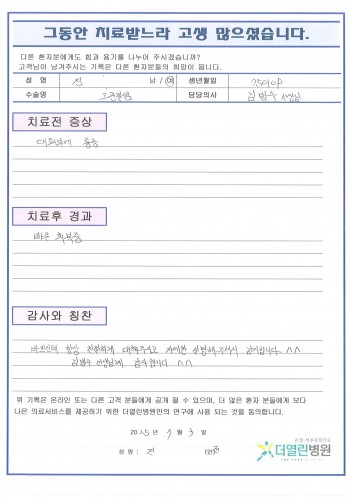 그동안 치료받느라 고생 많으셨습니다.
다른 환자분에게도 힘과 용기를 나누어 주시겠습니까?
고객님이 남겨주시는 기록은 다른 환자분들의 희망이 됩니다.
성 명 전 남 / 여 생년월일
수술명 담당의사 김범수 선생님
치료전 증상
통증
치료후 경과
빠른 회복중
감사와 칭찬
바쁘신데 항상 친절하게 대해주시고 자세한 설명해주셔서 감사합니다 ^^
김범수 선생님께 감사합니다 ^^
위 기록은 온라인 또는 다른 고객 분들에게 공개 될 수 있으며, 더 많은 환자 분들에게 보다
나은 의료서비스를 제공하기 위한 더열린병원만의 연구에 사용 되는 것을 동의합니다.
2015년 7월 3일
성 명 : 전 (인)
더열린병원